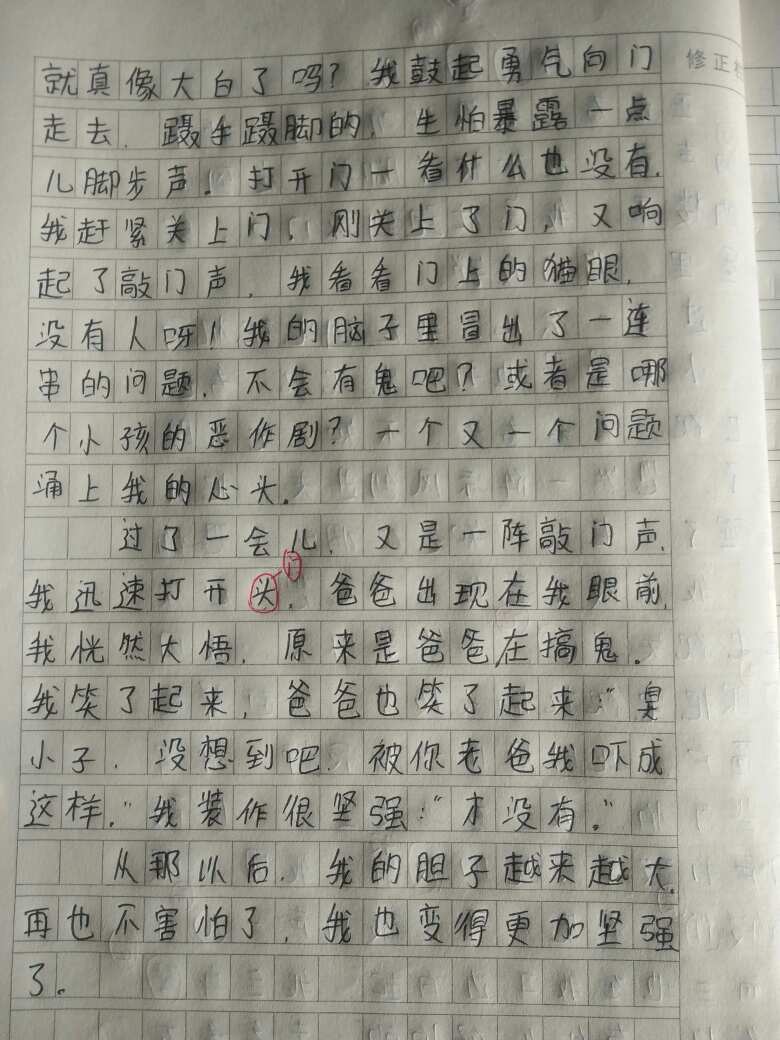 就真像大白了吗？我鼓起勇气向门
修正栏
走去，蹑手蹑脚的，生怕暴露一点
儿脚步声，打开门一看什么也没有，
我赶紧关上门，刚关上了门，又响
起了敲门声，我看看门上的猫眼，
没有人呀！我的脑子里冒出了一连
串的问题，不会有鬼吧？或者是哪
个小孩的恶作剧？一个又一个问题
涌上我的心头。
过了一会儿，又是一阵敲门声，
门
我迅速打开头，爸爸出现在我眼前，
我恍然大悟，原来是爸爸在搞鬼。
我笑了起来，爸爸也笑了起来：“臭
小子，没想到吧，被你老爸我吓成
这样。”我装作很坚强：“才没有。”
从那以后，我的胆子越来越大，
再也不害怕了，我也变得更加坚强
了。